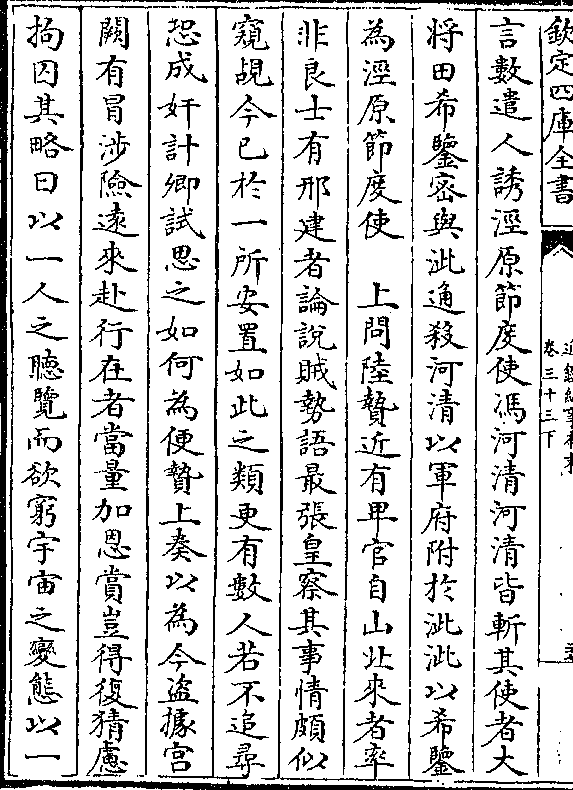 欽定四庫全書
卷三十三下
言數遣人誘涇原節度使馮河清河清皆斬其使者大
將田希鑒密與泚通殺河清以軍府附於泚泚以希鑒
為涇原節度使　上問陸贄近有卑官自山北來者率
非良士有邢建者論說賊勢語最張皇察其事情頗似
窺覘今已於一所安置如此之類更有數人若不追尋
恐成奸計卿試思之如何為便贄上奏以為今盜據宮
闕有冒涉險遠來赴行在者當量加恩賞豈得復猜慮
拘囚其略曰以一人之聽覽而欲窮宇宙之變態以一